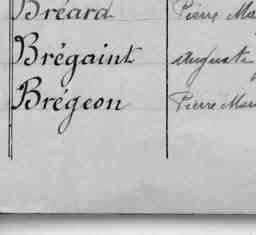 Bréard Pierre Ma
Brégaint auguste
Brégeon Pierre Mar